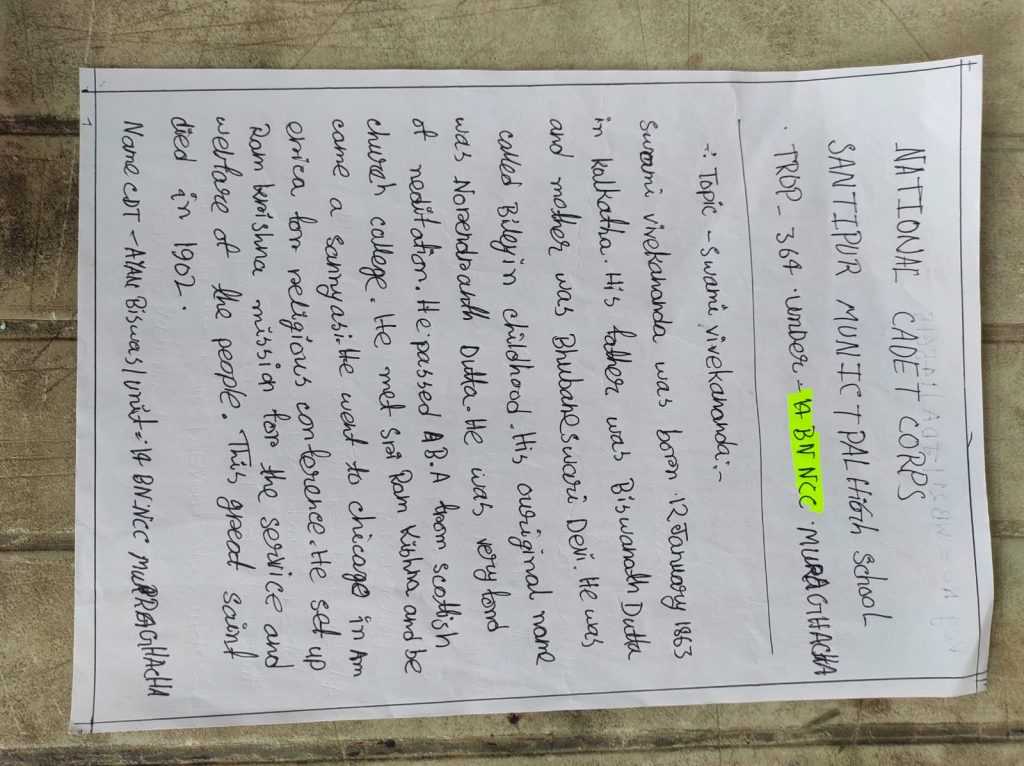 NATIONAL CADET CORPS
SANTIPUR MUNICIPAL High school
. TRDP - 364 . umber - 14 BN NCC . MURAGHACHA
-: Topic - Swami vivekananda :-
swami vivekananda was born 12 January 1863
in kalkatha. His father was Biswanath Dutta
and mother was Bhubaneswari Devi. He was
called Bileyin childhood. His ouriginal name
was Norendranth Dutta. He was very fond
of neditation. He passed A B.A from scottish
church callege. He met Sri Ram Kishna and be
came a sannyasi. He went to chicago in Am
erica for religious conference. He set up
Ram krishna mission for the service and
welfare of the people. This great saint
died in 1902.
Name CDT - AYAN Biswas / unit = 14 BN.NCC MURRAGHACHA